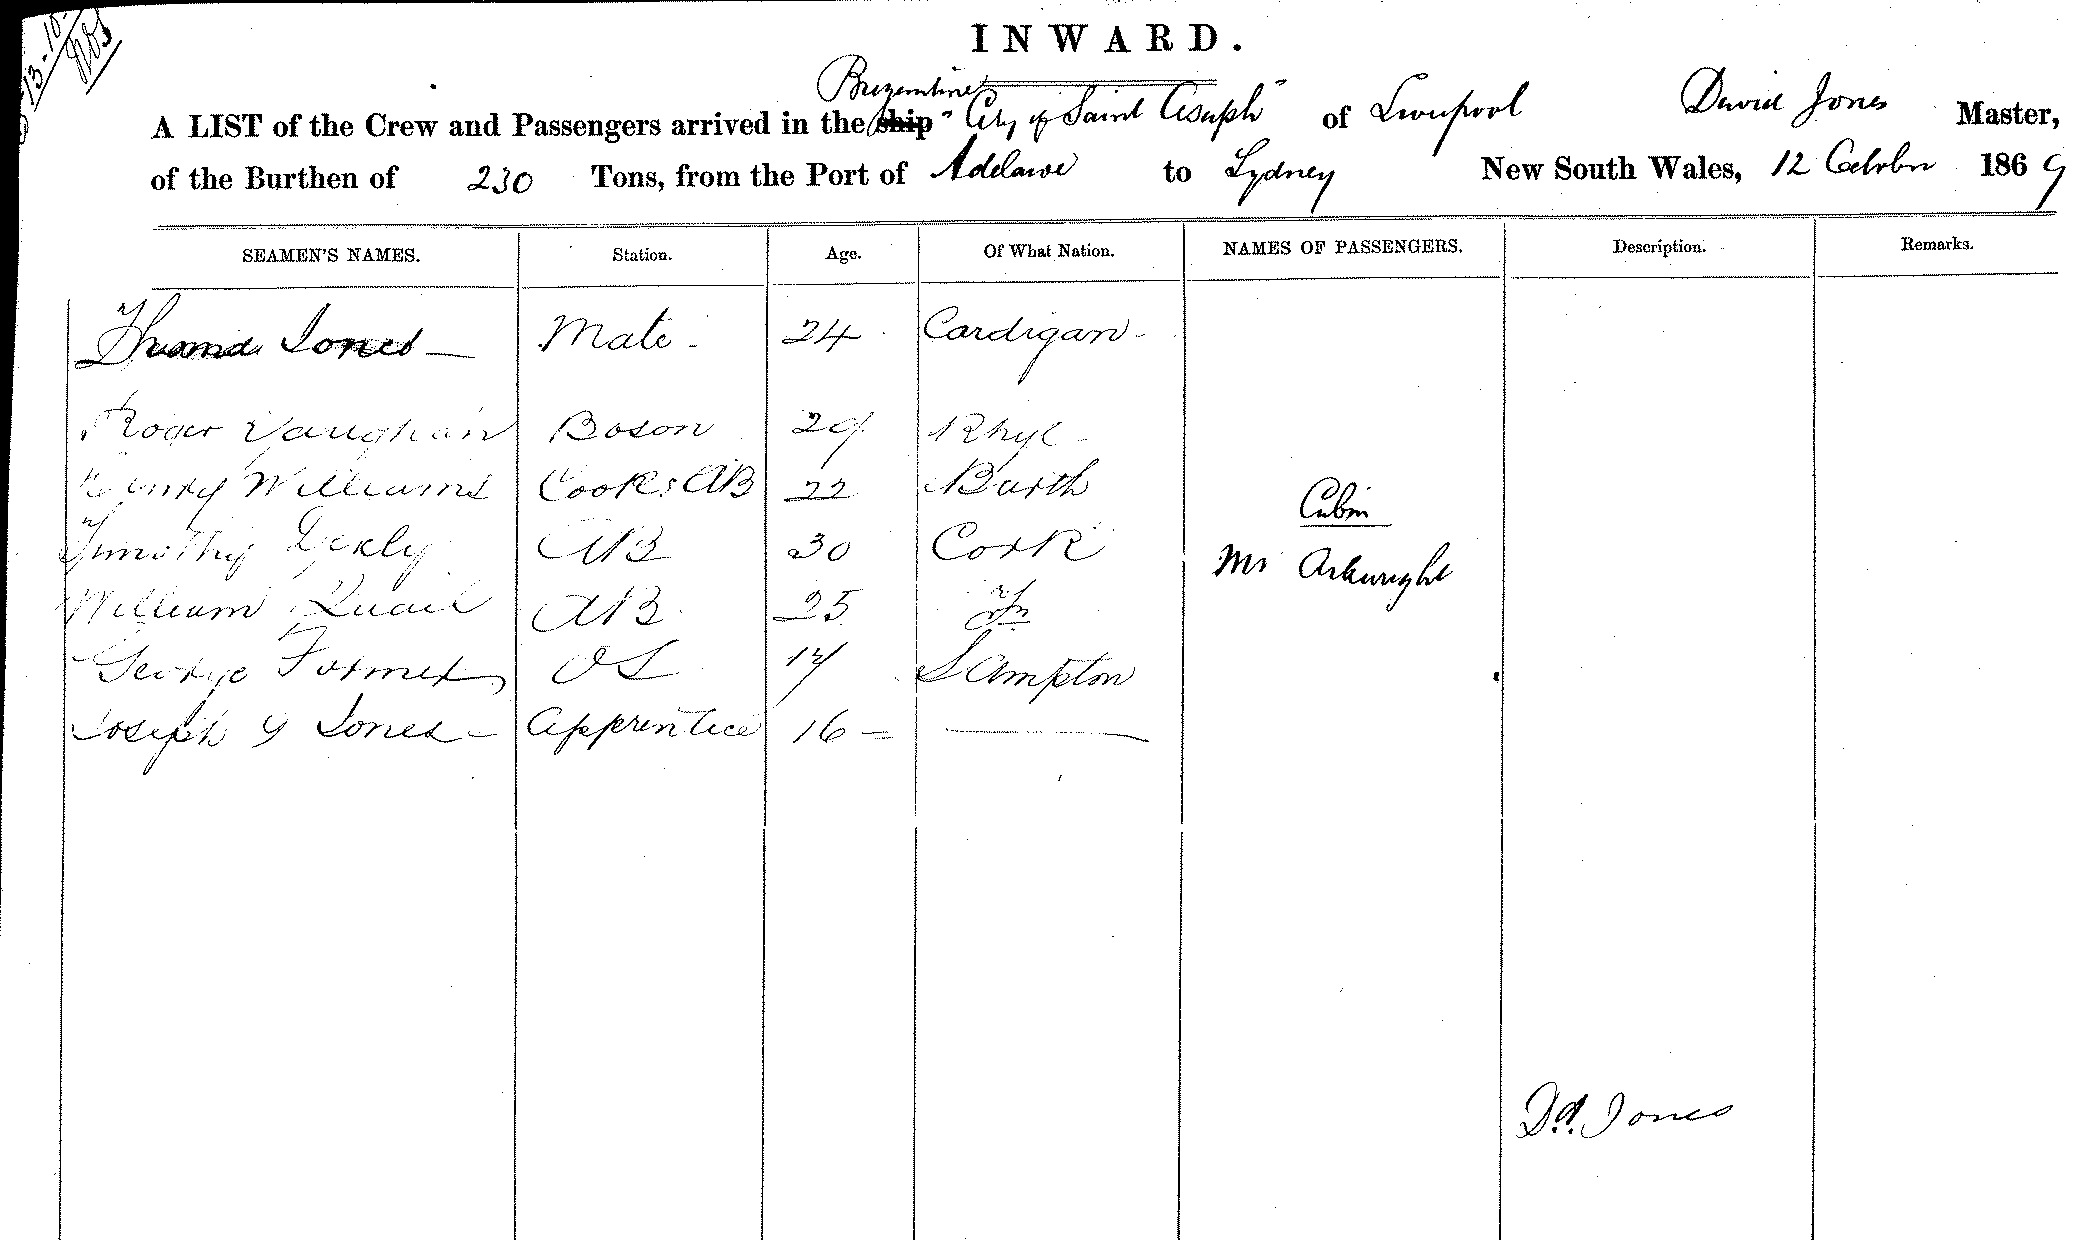 13-10-
INWARD.
Brigantine
A LIST of the Crew and Passengers arrived in the ship "City of Saint Asaph" of Liverpool David Jones Master,
of the Burthen of 230 Tons, from the Port of Adelaide to Sydney New South Wales, 12 October 1869
SEAMEN'S NAMES. Station. Age. Of What Nation. NAMES OF PASSENGERS. Description. Remarks.
Thomas Jones — Mate - 24 Cardigan -
Roger Vaughan Boson 29 Rhyl -
Henry Williams Cook & AB 22 Barth
Cabin
Timothy AB 30 Cork
Mr Arkwright
William Quail AB 25
George Former OS 17 S Ampton
Joseph G Jones - Apprentice 16 = —
Dd. Jones